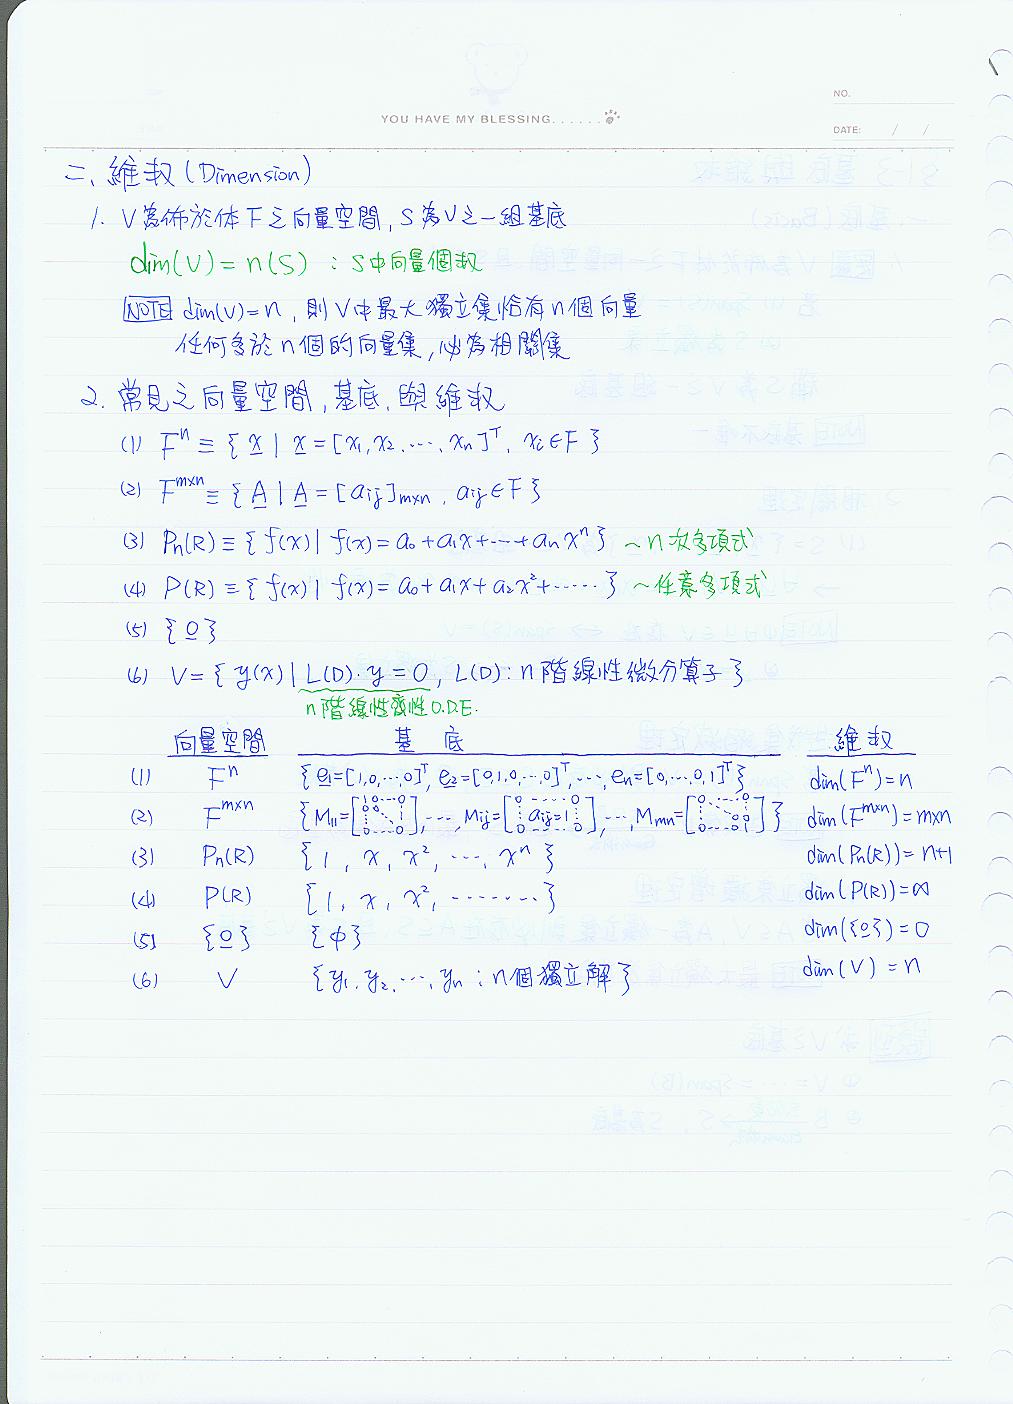 YOU HAVE MY BLESSING......
NO.
DATE: / /
二、維叔(Dimension)
1. V為佈於体F之向量空間, S為V之一組基底
dim(V) = n(S) : S中向量個叔
NOTE dim(V)=n, 則V中最大獨立集恰有n個向量
任何多於n個的向量集, 必為相關集
2. 常見之向量空間, 基底, 與維叔
(1) Fⁿ ≡ { x | x = [x₁, x₂, ⋯, xₙ]ᵀ, xᵢ ∈ F }
(2) Fᵐˣⁿ ≡ { A | A = [aᵢⱼ]ₘₓₙ, aᵢⱼ ∈ F }
(3) Pₙ(R) ≡ { f(x) | f(x) = a₀ + a₁x + ⋯ + aₙxⁿ } ~ n次多項式
(4) P(R) ≡ { f(x) | f(x) = a₀ + a₁x + a₂x² + ⋯⋯ } ~ 任意多項式
(5) { 0 }
(6) V = { y(x) | L(D)·y = 0, L(D): n階線性微分算子 }
n階線性齊性O.D.E.
向量空間 基底 維叔
(1) Fⁿ { e₁=[1,0,⋯,0]ᵀ, e₂=[0,1,0,⋯,0]ᵀ, ⋯, eₙ=[0,⋯,0,1]ᵀ } dim(Fⁿ)=n
(2) Fᵐˣⁿ { M₁₁=[1 0 ⋯ 0 ⋮ 0 ⋯ 0], ⋯, Mᵢⱼ=[0 ⋯ 0 ⋮ aᵢⱼ=1 ⋮ 0 ⋯ 0], ⋯, Mₘₙ=[0 ⋯ 0 ⋮ 0 ⋯ 0 1] } dim(Fᵐˣⁿ)=m×n
(3) Pₙ(R) { 1, x, x², ⋯, xⁿ } dim(Pₙ(R))=n+1
(4) P(R) { 1, x, x², ⋯⋯ } dim(P(R))=∞
(5) { 0 } { φ } dim({0})=0
(6) V { y₁, y₂, ⋯, yₙ : n個獨立解 } dim(V)=n